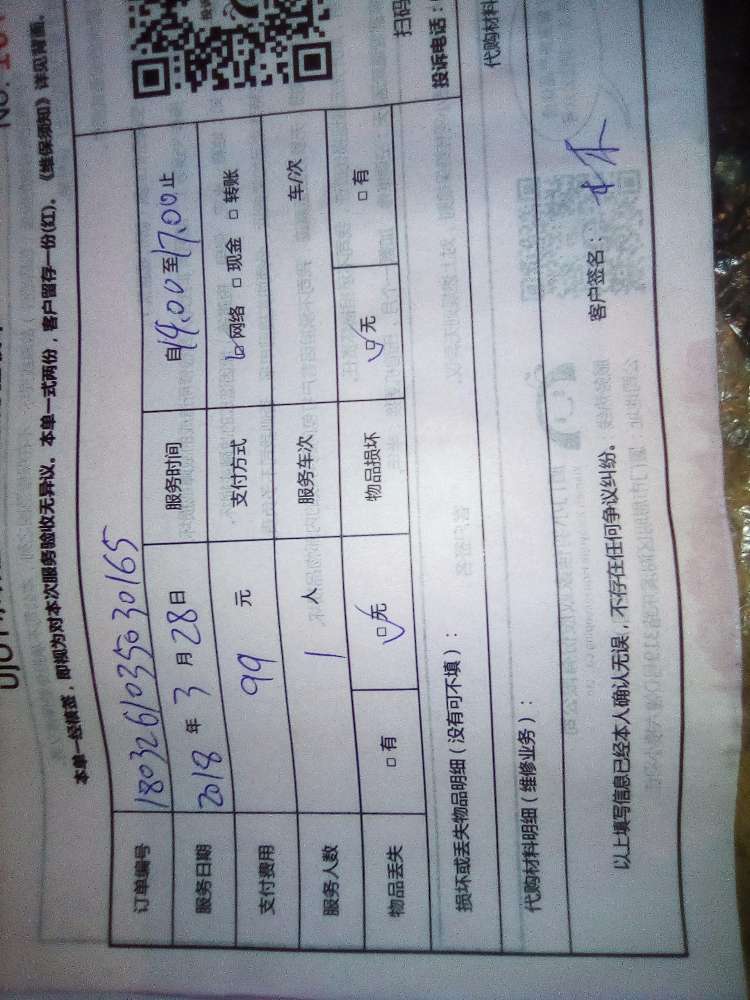 本单一经横签，即视为对本次服务验收无异议。本单一式两份，客户留存一份(红)。《维保须知》详见背面。
订单编号 18032610356030165
服务日期 2018 年 3 月 28 日 服务时间 自14.00至17.00止
支付费用 99 元 支付方式 ☑网络 □现金 □转账
服务人数 1 人 服务车次 车/次
物品丢失 □有 ☑无 物品损坏 ☑无 □有
损坏或丢失物品明细（没有可不填）：
代购材料明细（维修业务）： 代购材料
以上填写信息已经本人确认无误，不存在任何争议纠纷。 客户签名：
扫码
投诉电话：